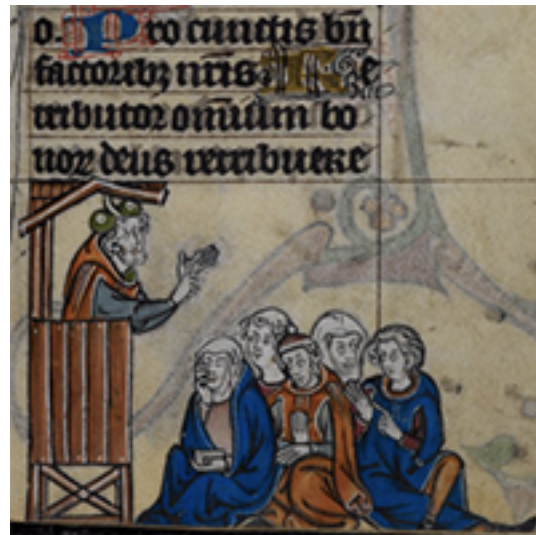 o. Pro cunctis bn̄
factoribꝫ nr̄is. Re
tributor om̄ium bo
noꝝ deus retribuere